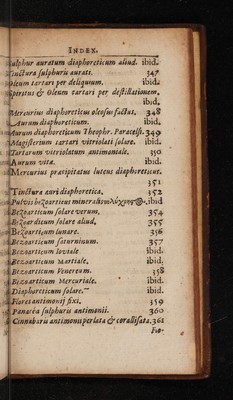 INDEX.
Sulphur auratum diaphoreticum aliud. ibid.
Tinctura sulphuris aurati. 347
Oleum tartari per deliquium. ibid.
Spiritus & Oleum tartari per destillationem.
ibid.
Mercurius diaphoreticus oleosus factus. 348
Aurum diaphoreticum. ibid.
Aurum diaphoreticum Theophr. Paracelsi. 349
Magisterium tartari vitriolati solare. ibid.
Tartarum vitriolatum antimoniale. 350
Aurum vitæ. ibid.
Mercurius præcipitatus luteus diaphoreticus.
351
Tinctura auri diaphoretica. 352
Pulvis bezoarticus mineralis ibid
Bezoarticum solare verum. 354
Bezoardicum solare aliud. 355
Bezoarticum lunare. 356
Bezoarticum saturninum. 357
Bezoarticum Ioviale ibid.
Bezoarticum Martiale. ibid.
Bezoarticum Venereum. 358
Bezoarticum Mercuriale. ibid.
Diaphoreticum solare. ibid.
Flores antimonij fixi. 359
Panacea sulphuris antimonii. 360
Cinnabaris antimonii perlata & corallisata. 361
Flo-